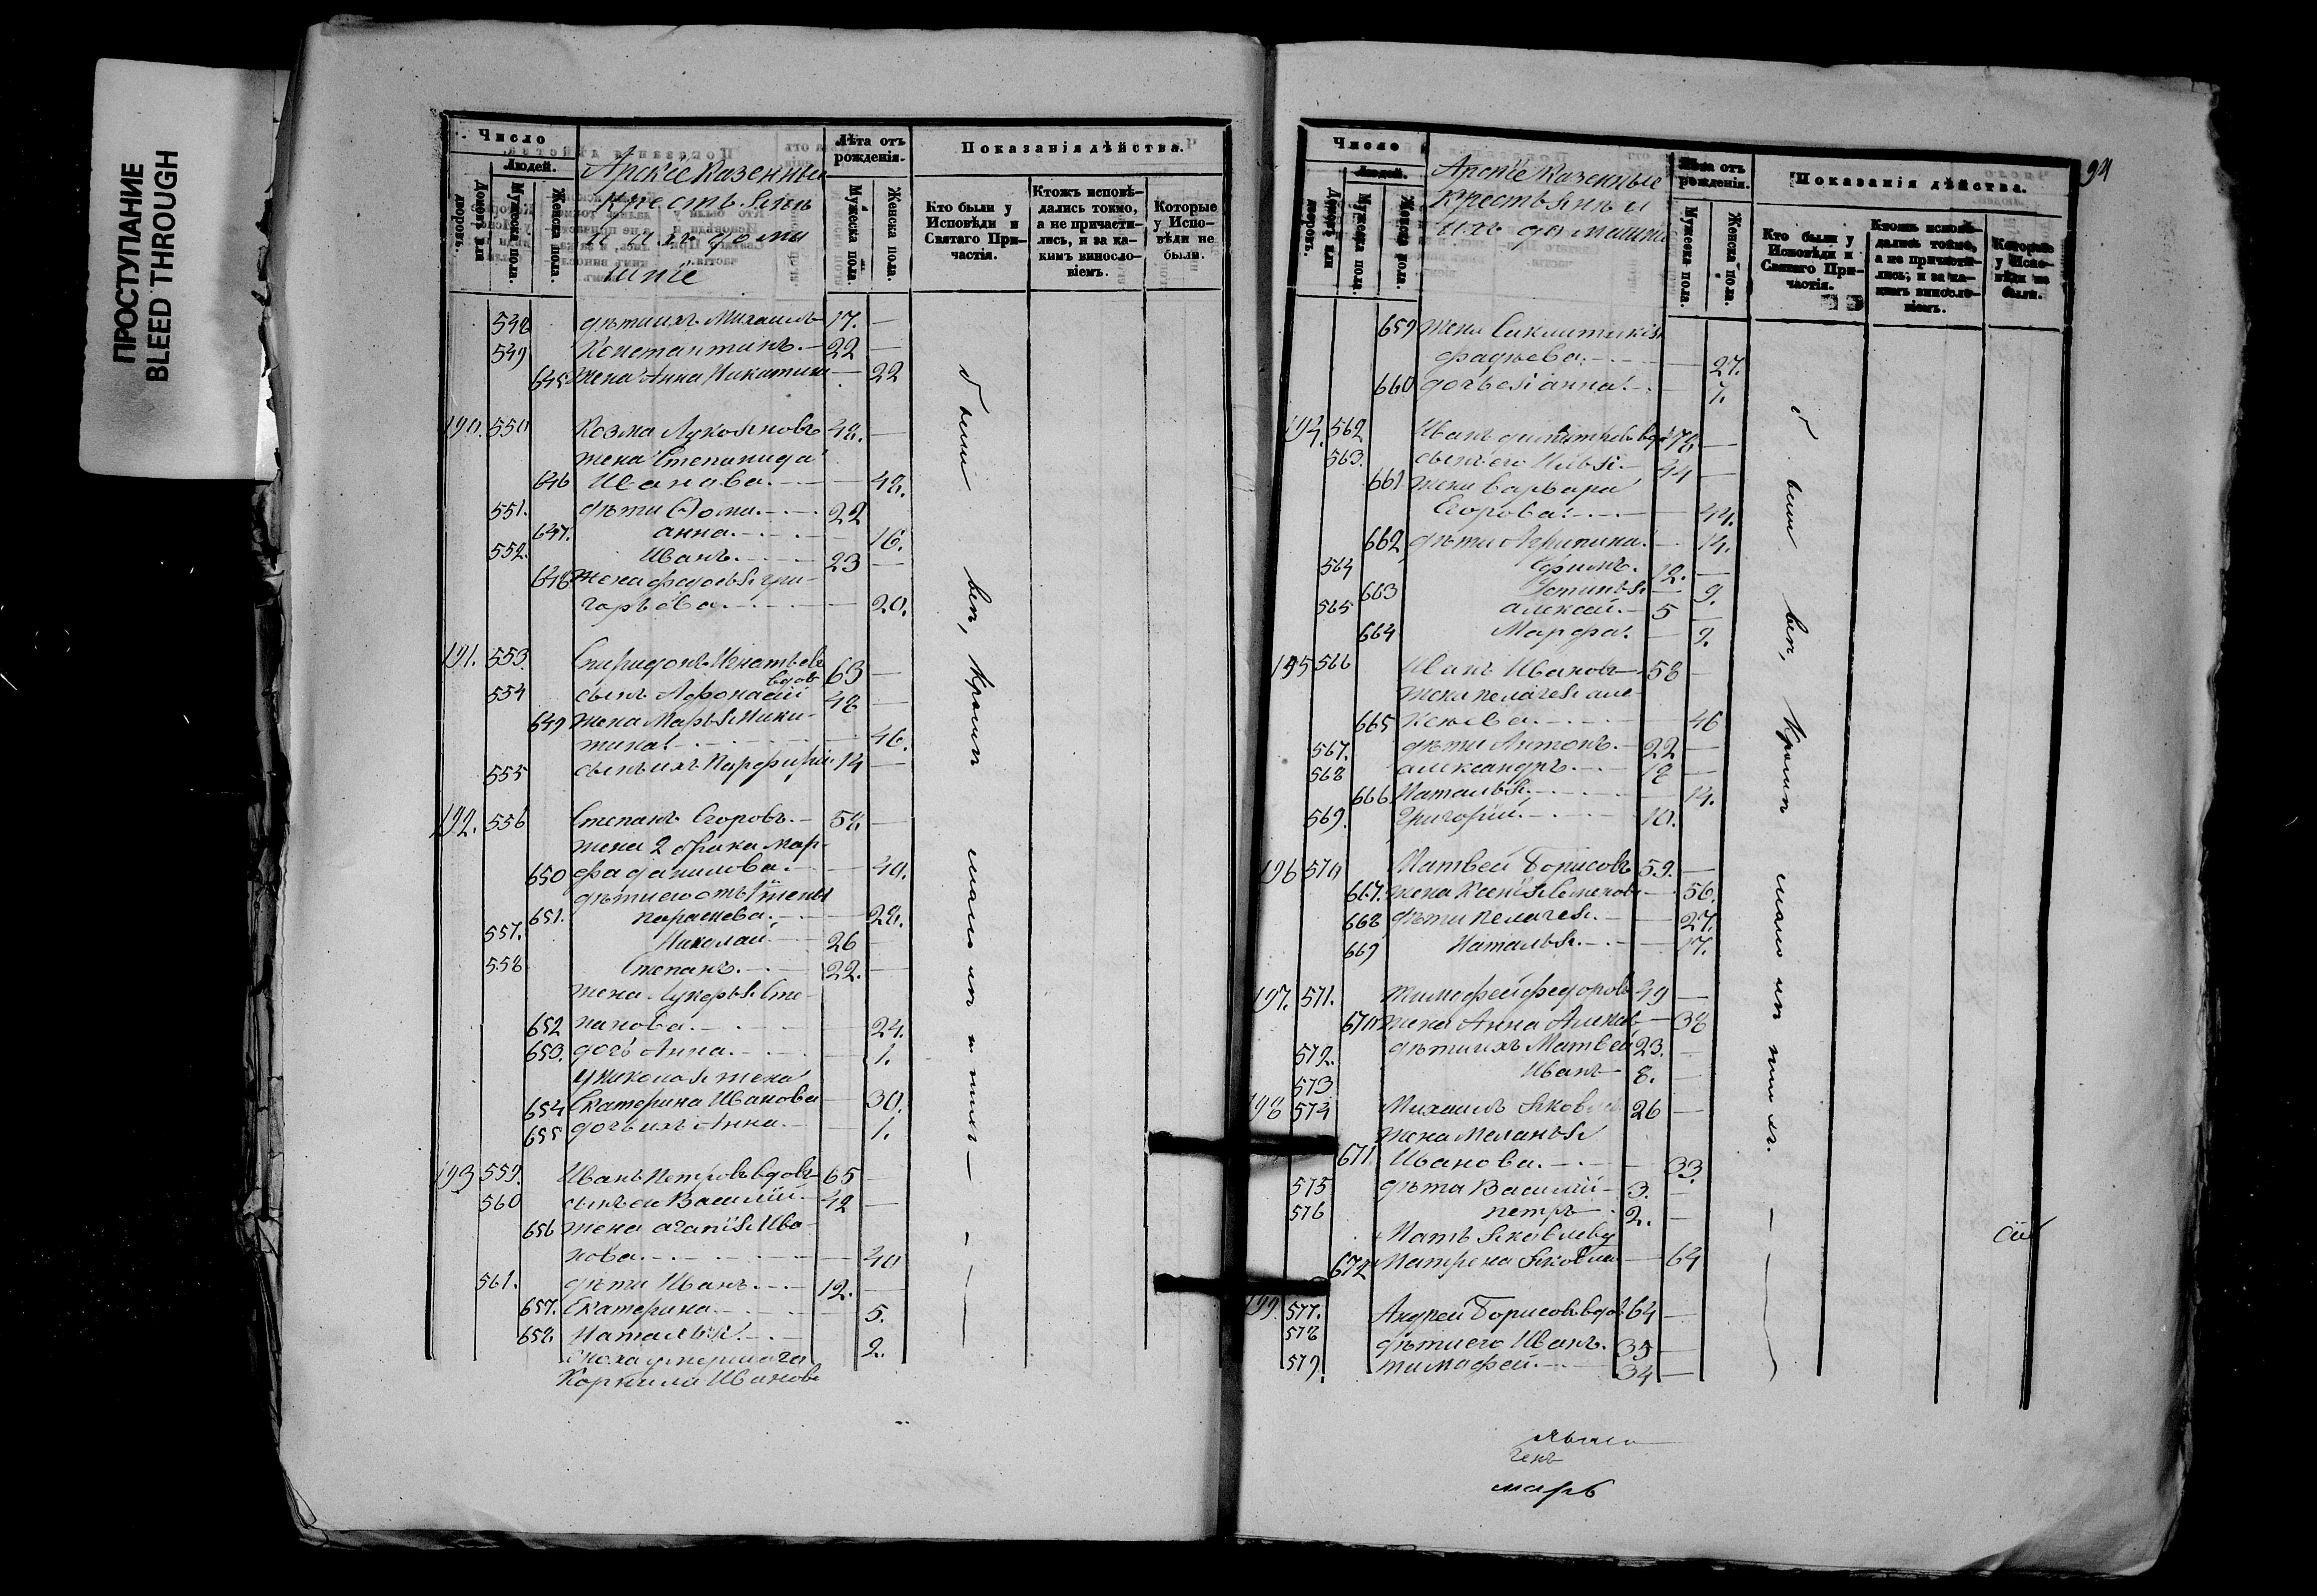 ПРОСТУПАНИЕ
BLEED THROUGH
Число
Людей.
Домовъ или дворовъ.
Мужеска пола.
Женска пола.
Арскіе казенные
крестьяне
и ихъ дома
шніе
Лѣта отъ рожденія.
Мужеска пола.
Женска пола.
Показанія дѣйства.
Кто были у Исповѣди и Святаго При-частія.
Ктожъ исповѣ-дались токмо, а не причасти-лись, и за ка-кимъ винослo-віемъ.
Которые у Испо-вѣди не были.
548 дѣти ихъ Михаилъ 17. —
549 Константинъ. — 22 —
645 жена Анна Никитина — 22
190. 550 Козма Лукояновъ 48. —
жена Степанида
646 Иванова. — 48.
551. дѣти Ѳома. — 22
647. анна. — 16.
552. Иванъ. — 23 —
648 жена федосья гри-
горьева. — 20.
191. 553. Спиридонъ Игнатьевъ
вдовъ 63 —
554 сынъ Афонасій 48 —
649 жена Марья Ники-
тина. — 46.
555 сынъ ихъ Парфирій. 14 —
192. 556 Степанъ Егоровъ. — 58. —
жена 2 брака мар-
650 фа данилова. — 40.
дѣти его отъ 1 жены
651. параскева. — 28.
557. Николай — 26 —
558 Степанъ. — 22. —
жена Лукерья Сте-
652 панова. — 24.
653. дочь Анна. — 1.
у николая жена
654 Екатерина Иванова — 30.
655 дочь ихъ Анна. — 1.
193 559. Иванъ Петровъ вдовъ 65 —
560 сынъ ею Василій — 42 —
656 жена агапія Ива-
нова. — 40
561. дѣти Иванъ. — 12. —
657. Екатерина. — 5.
658. Наталья. — 2.
сноха умершаго
Корнила Иванова
были всѣ, кромѣ малолѣтнихъ —
94
Число
Людей.
Домовъ или дворовъ.
Мужеска пола.
Женска пола.
Арскіе казенные
крестьяне и
ихъ домашніе
Лѣта отъ рожденія.
Мужеска пола.
Женска пола.
Показанія дѣйства.
Кто были у Исповѣди и Святаго При-частія.
Ктожъ исповѣ-дались токмо, а не причасти-лись, и за ка-кимъ винослo-віемъ.
Которые у Испо-вѣди не были.
659 жена
фадѣева. — 27.
660 дочь ея анна. — 7.
194. 562 Иванъ вдовъ 78. —
563. сынъ его Илья. — 44 —
661 жена Варвара
Егорова. — 44.
662 дѣти Агрипина. — 14.
564 Ефимъ. 12. —
663 Устинья — 9.
565 алексей. — 5 —
664 Марфа. — 2.
195 566 Иванъ Ивановъ — 58 —
жена пелагея але-
665 ксѣева. — 46
567. дѣти Антонъ. — 22 —
568 александръ. — 18 —
666 Наталья. — 14.
569. Григорій. — 10.
196 570 Матвей Борисовъ 59. —
667. жена Ксенія Семенова — 56.
668 дѣти пелагея. — 27.
669 Наталья. — 17.
197. 571. тимофей федоровъ 49 —
670 жена Анна Алексѣ — 38
572. дѣти ихъ Матвей 23. —
573 Иванъ — 8. —
198 574 Михаилъ яковлевъ 26 —
жена Меланья
671 Иванова. — 33.
575 дѣти Василій — 3. —
576 петръ — 2. —
Мать яковлеву
672 Матрена яковлева — 64
199 577. Андрей Борисовъ вдовъ 64 —
578 дѣти его Иванъ. 35 —
579. тимофей. — 34 —
были всѣ, кромѣ малолѣтнихъ. —
сій